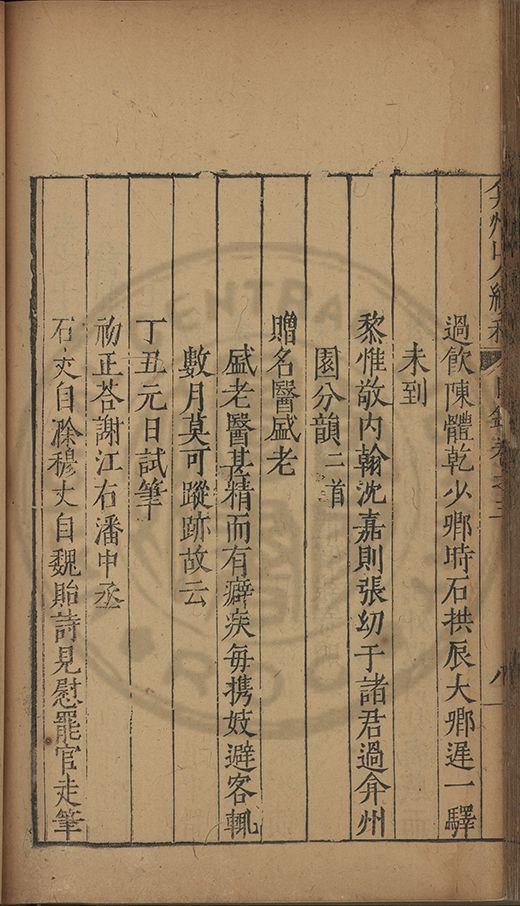 弇州山人續稿 目錄卷之三 八
過飲陳體乾少卿時石拱辰大卿遲一驛
未到
黎惟敬內翰沈嘉則張幼于諸君過弇州
園分韻二首
贈名醫盛老
盛老醫甚精而有癖疾每攜妓避客輒
數月莫可蹤跡故云
丁丑元日試筆
初正荅謝江右潘中丞
石丈自滁穆丈自魏貽詩見慰罷官走筆